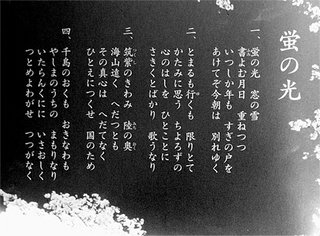 蛍の光
一、蛍の光 窓の雪
書よむ月日 重ねつつ
いつしか年も すぎの戸を
あけてぞ今朝は 別れゆく
二、とまるも行くも 限りとて
かたみに思う ちよろずの
心のはしを ひとことに
さきくとばかり 歌うなり
三、筑紫のきわみ 陸の奥
海山遠く へだつとも
その真心は へだてなく
ひとえにつくせ 国のため
四、千島のおくも おきなわも
やしまのうちの まもりなり
いたらんくにに いさおしく
つとめよわがせ つつがなく